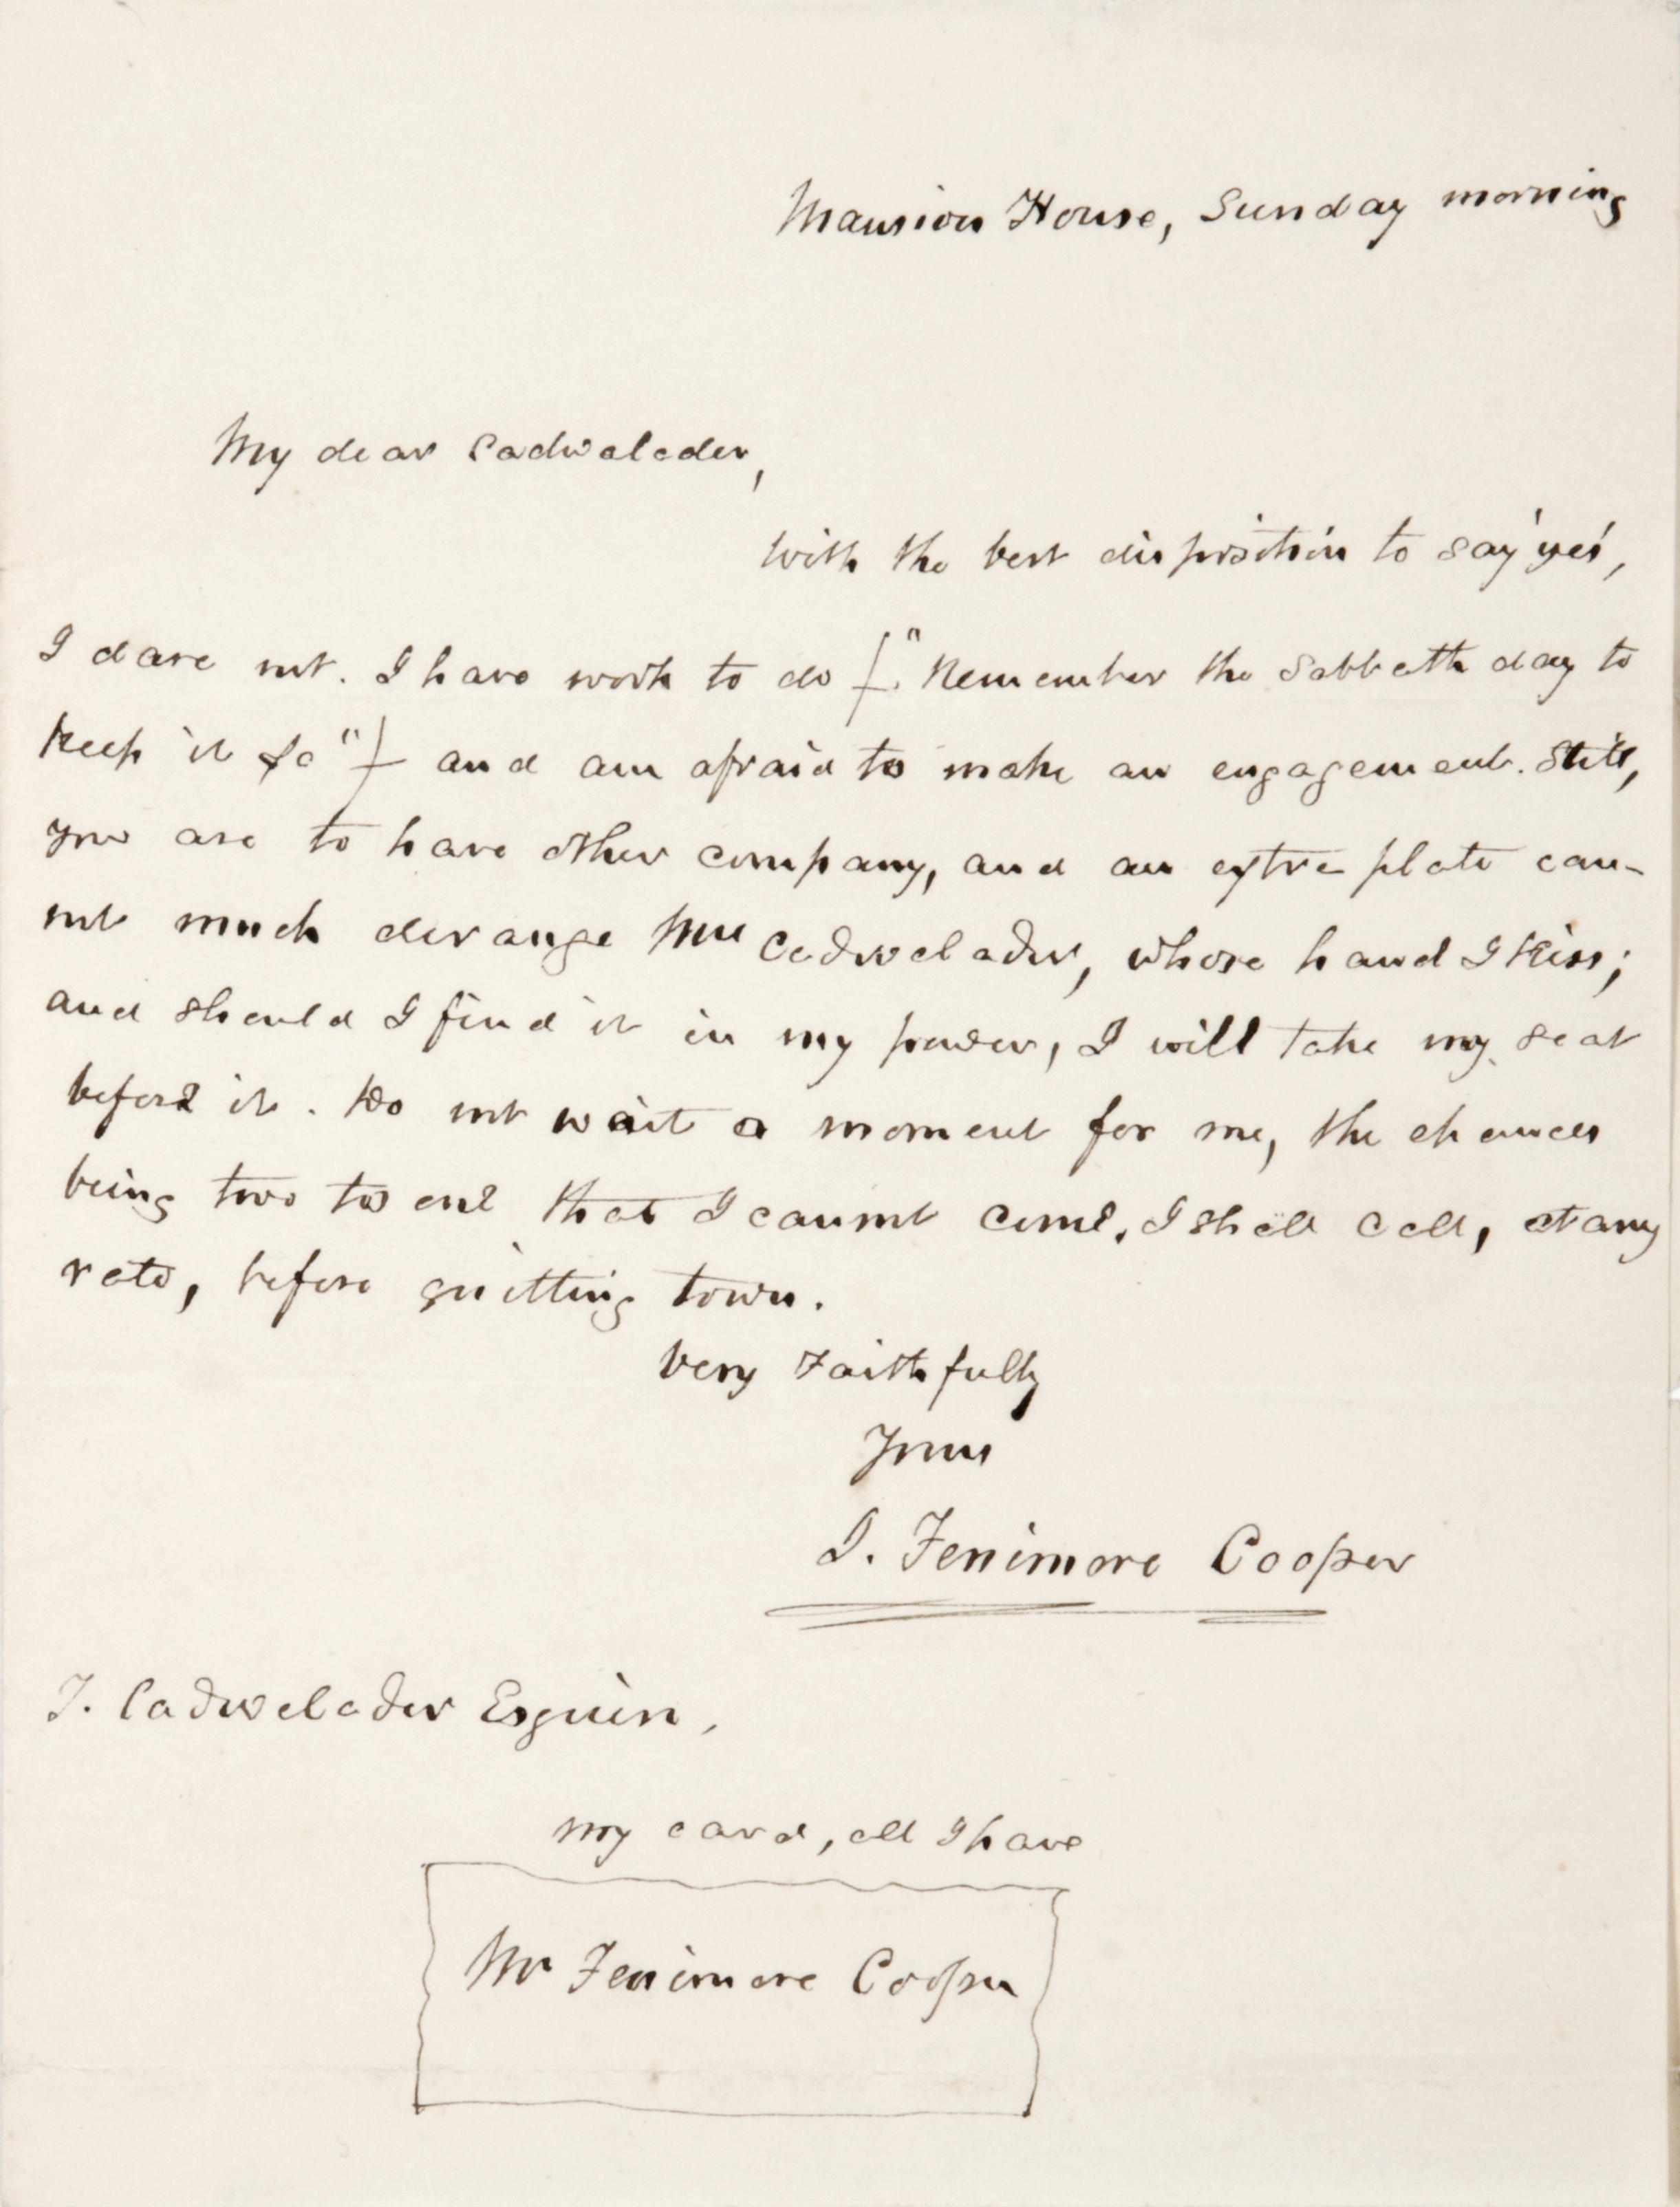 Mansion House, Sunday morning
My dear Cadwalader,
With the best disposition to say 'yes',
I dare not. I have work to do ("Remember the Sabbath day to
keep it &c") and am afraid to make an engagement. Still,
you are to have other company, and an extra plate can-
not much derange Mrs Cadwalader, whose hand I kiss;
and should I find it in my power, I will take my seat
before it. Do not wait a moment for me, the chances
being two to one that I cannot come. I shall call, at any
rate, before quitting town.
Very Faithfully
Yours
J. Fenimore Cooper
T. Cadwalader Esquire,
my card, all I have
Mr Fenimore Cooper